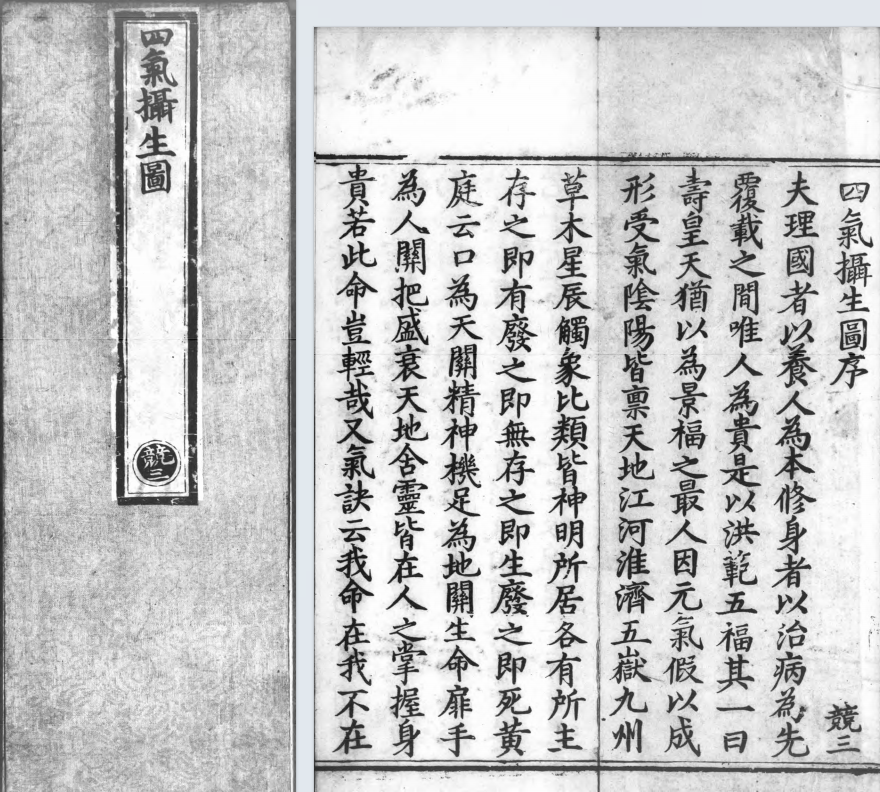 四氣攝生圖
競三
四氣攝生圖序
競三
夫理國者以養人為本修身者以治病為先
覆載之間唯人為貴是以洪範五福其一曰
壽皇天猶以為景福之最人因元氣假以成
形受氣陰陽皆禀天地江河淮濟五嶽九州
草木星辰觸象比類皆神明所居各有所主
存之即有廢之即無存之即生廢之即死黃
庭云口為天關精神機足為地關生命扉手
為人關把盛衰天地含靈皆在人之掌握身
貴若此命豈輕哉又氣訣云我命在我不在